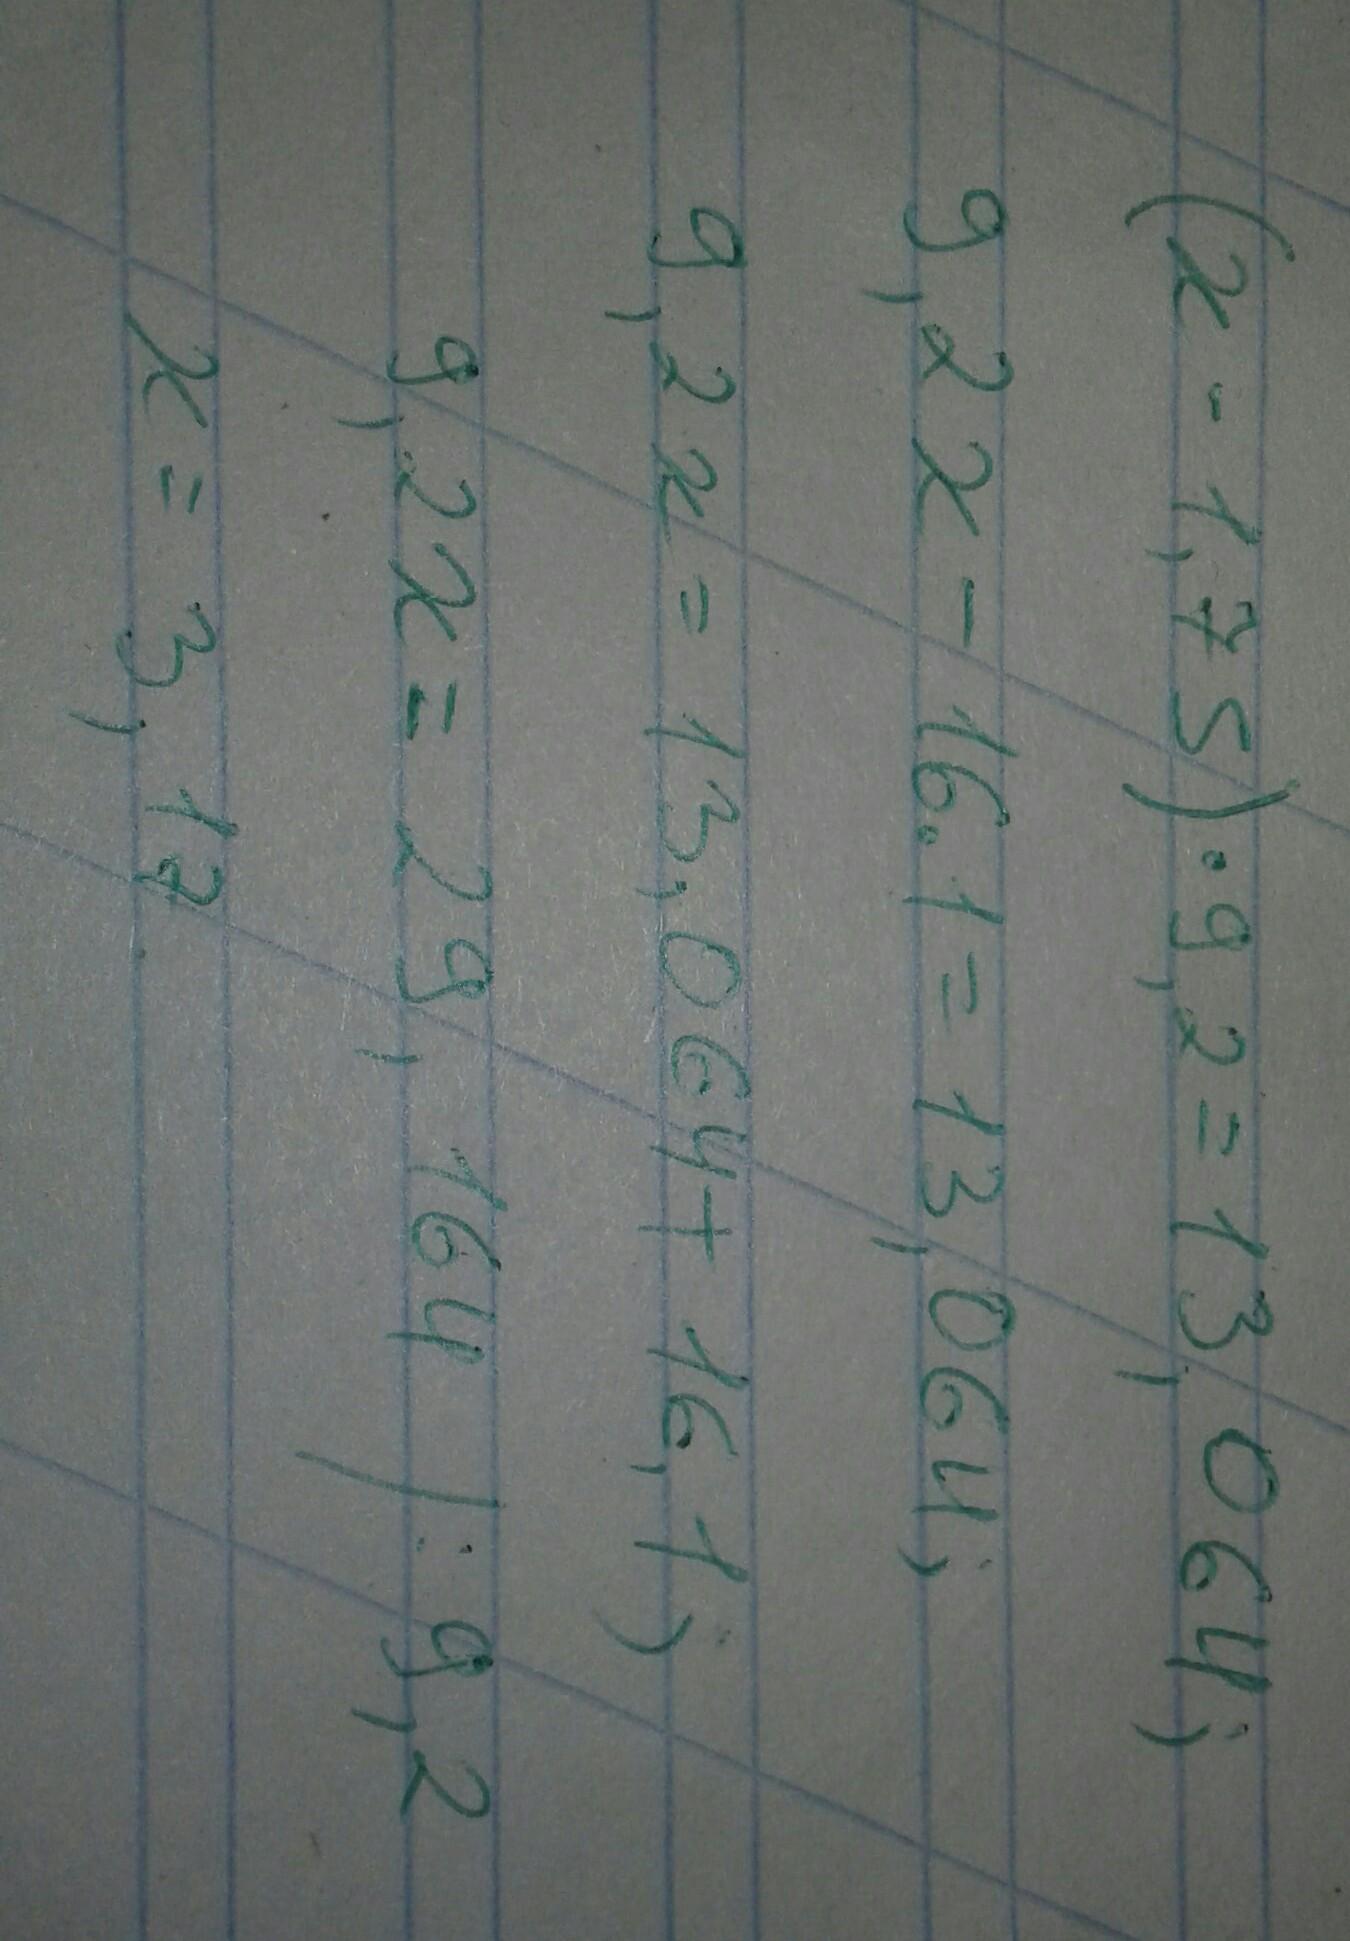 (x - 1,75) · 9,2 = 13,064;
9,2x - 16.1 = 13,064;
9,2x = 13,064 + 16,1;
9,2x = 29,164 / : 9,2
x = 3,17.